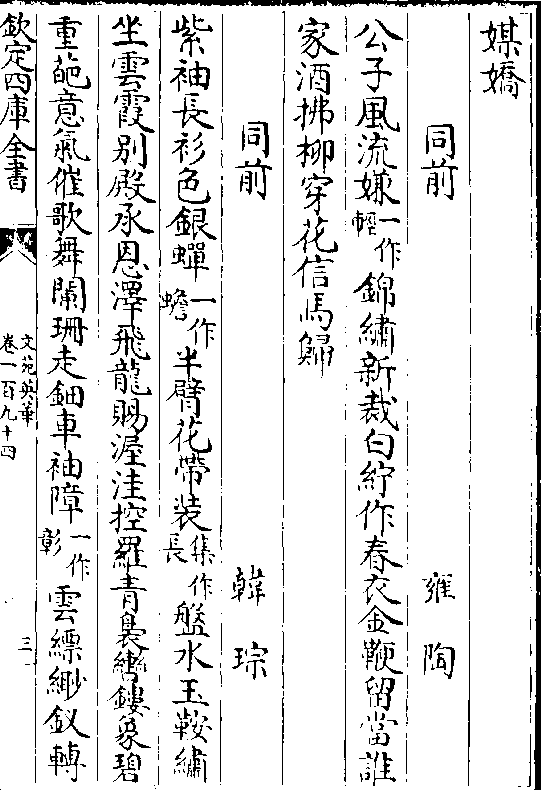 媒嬌
同前 雍陶
公子風流嫌一作輕錦繡新裁白紵作春衣金鞭留當誰
家酒拂柳穿花信馬歸
同前 韓琮
紫袖長衫色銀蟬一作蟾半臂花帶装集作長盤水玉鞍繡
坐雲霞别殿承恩澤飛龍賜渥洼控羅青裊轡鏤象碧
重葩意氣催歌舞闌珊走鈿車袖障一作彰雲縹緲釵轉
欽定四庫全書 文苑英華 卷一百九十四 三